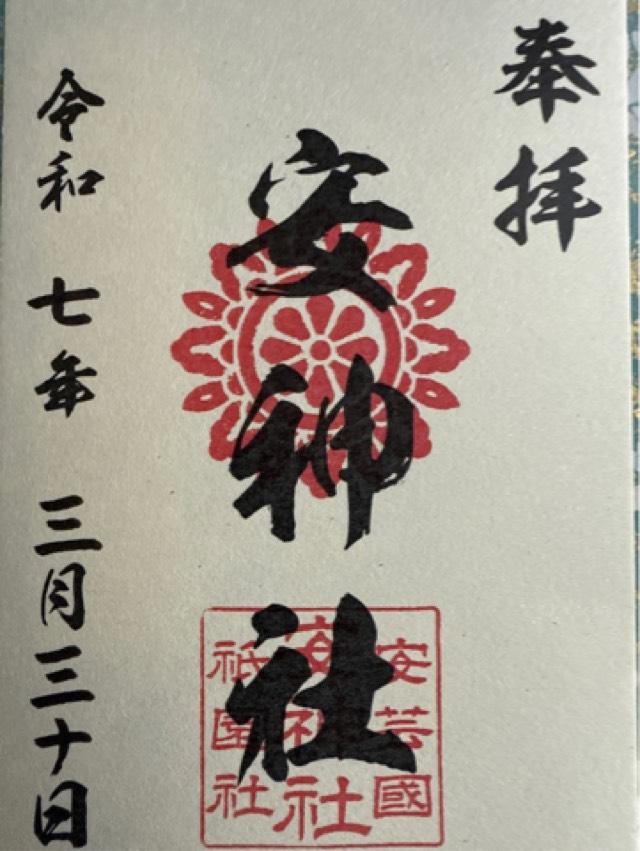 奉拝
安神社
安芸國
安神社
祇園社
令和 七年 三月三十日